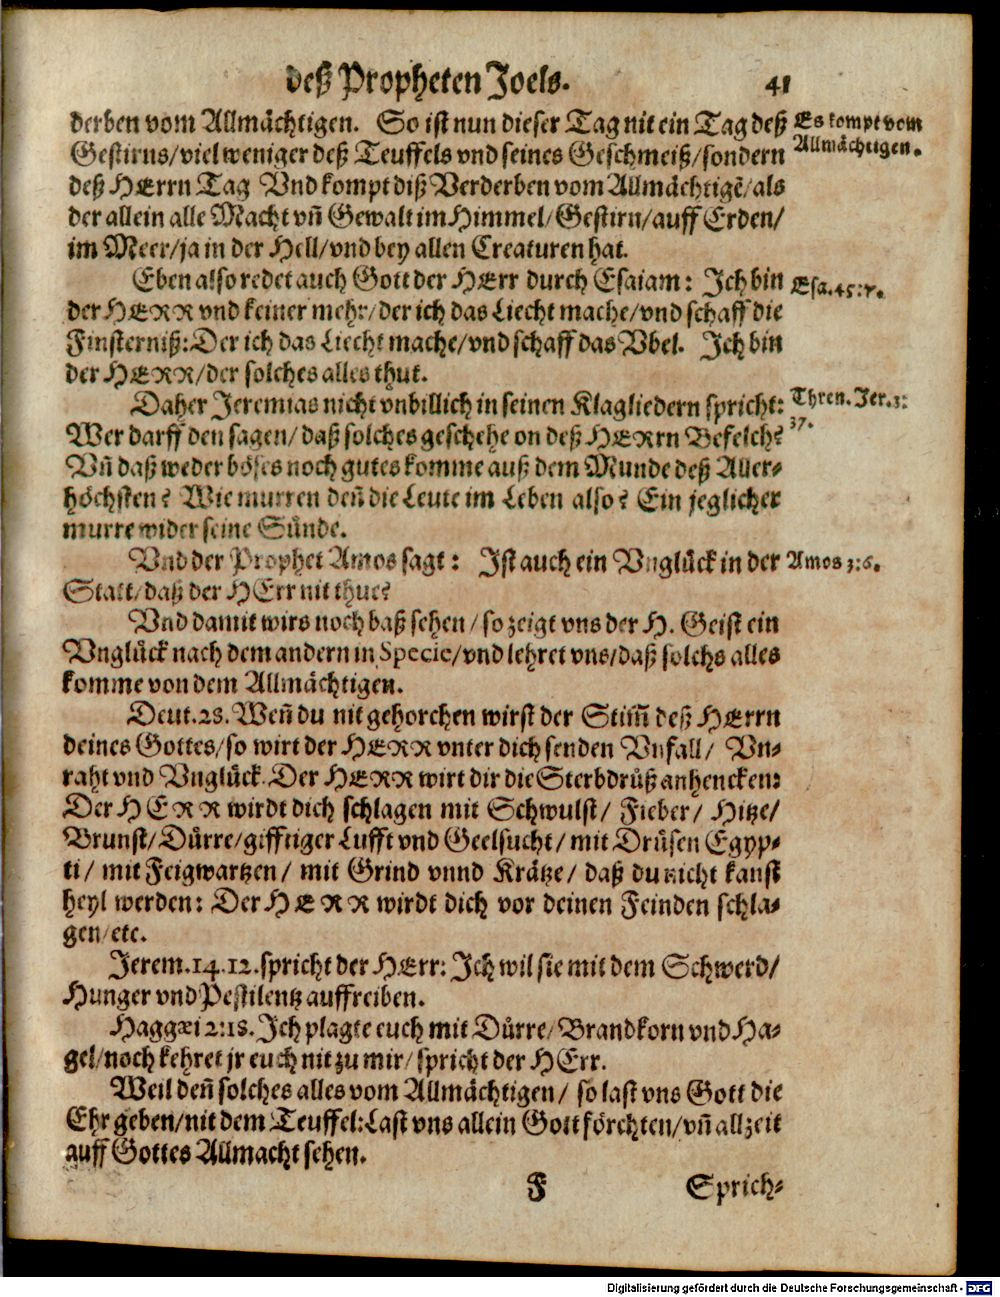 deß Propheten Joels. 41
derben vom Allmächtigen. So ist nun dieser Tag nit ein Tag deß
Es kompt vom
Allmächtigen.
Gestirns/viel weniger deß Teuffels vnd seines Geschmeiß/sondern
deß HErrn Tag Vnd kompt diß Verderben vom Allmächtigē/als
der allein alle Macht vñ Gewalt im Himmel/Gestirn/auff Erden/
im Meer/ja in der Hell/vnd bey allen Creaturen hat.
Eben also redet auch Gott der HErr durch Esaiam: Ich bin
Esa.45:7.
der HERR vnd keiner mehr/der ich das Liecht mache/vnd schaff die
Finsterniß:Der ich das Liecht mache/vnd schaff das Vbel. Ich bin
der HERR/der solches alles thut.
Daher Jeremias nicht vnbillich in seinen Klagliedern spricht:
Thren. Jer.3:
37.
Wer darff den sagen/daß solches geschehe on deß HERrn Befelch?
Vñ daß weder böses noch gutes komme auß dem Munde deß Aller-
höchsten? Wie murren deñ die Leute im Leben also? Ein jeglicher
murre wider seine Sünde.
Vnd der Prophet Amos sagt: Ist auch ein Vnglück in der
Amos 3:6.
Statt/daß der HErr nit thue?
Vnd damit wirs noch baß sehen/so zeigt vns der H. Geist ein
Vnglück nach dem andern in Specie/vnd lehret vns/daß solchs alles
komme von dem Allmächtigen.
Deut.28. Weñ du nit gehorchen wirst der Stim̄ deß HErrn
deines Gottes/so wirt der HERR vnter dich senden Vnfall/ Vn-
raht vnd Vnglück. Der HERR wirt dir die Sterbdrüß anhencken:
Der HERR wirdt dich schlagen mit Schwulst/ Fieber/ Hitze/
Brunst/Dürre/gifftiger Lufft vnd Geelsucht/mit Drüsen Egyp-
ti/ mit Feigwartzen/ mit Grind vnnd Krätze/ daß du nicht kanst
heyl werden: Der HERR wirdt dich vor deinen Feinden schla-
gen/etc.
Jerem.14.12.spricht der HErr: Ich wil sie mit dem Schwerd/
Hunger vnd Pestilentz auffreiben.
Haggæi 2:18. Ich plagte euch mit Dürre/Brandkorn vnd Ha-
gel/noch kehret jr euch nit zu mir/spricht der HErr.
Weil deñ solches alles vom Allmächtigen/ so last vns Gott die
Ehr geben/nit dem Teuffel:Last vns allein Gott förchten/vñ allzeit
auff Gottes Allmacht sehen.
F Sprich-
Digitalisierung gefördert durch die Deutsche Forschungsgemeinschaft - DFG